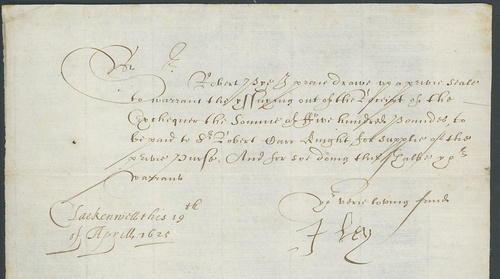 Sr
Robert Pye I praie drawe up a privie seale
to warrant the yssuying out of the Receipt of the
Exchequer the Somme of ffive hundred Poundes, to
be paid to Sr Robert Carr Knight, for supplie of the
privie Purse. And for soe doing this shalbe yor
warrant
Yor verie loving frind
J Ley
this 19th
of Aprill 1625